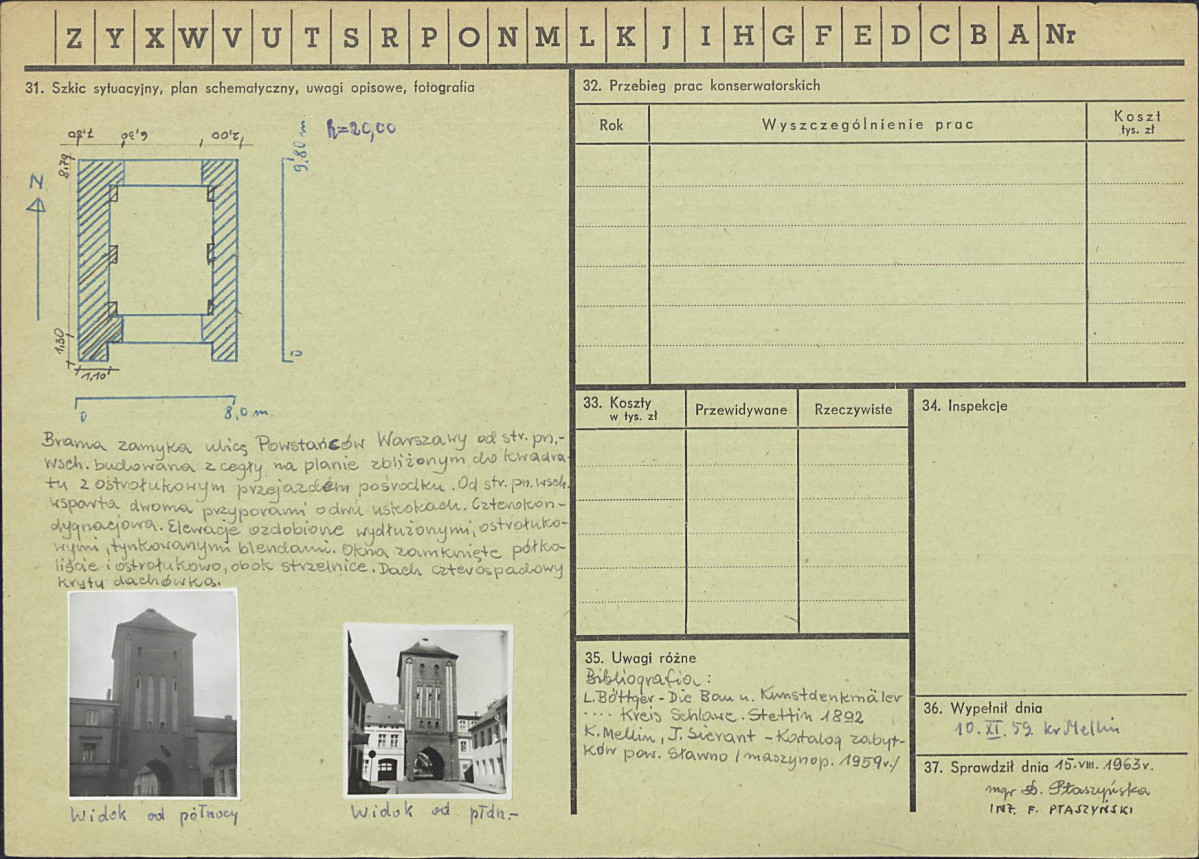 Z Y X W V U T S R P O N M L K J I H G F E D C B A Nr
31. Szkic sytuacyjny, plan schematyczny, uwagi opisowe, fotografia
7,80 6,30 2,00
h=20,00
8,79
9,80 m
N
1,30
1,10
0
0 8,0 m.
Brama zamyka ulicę Powstańców Warszawy od str. pn,-
wsch. budowana z cegły na planie zbliżonym do kwadra-
tu z ostrołukowym przejazdem pośrodku. Od str. pn. wsch.
wsparta dwoma przyporami o dwu uskokach. Czterokon-
dygnacjowa. Elewacje ozdobione wydłużonymi, ostrołuko-
wymi, tynkowanymi blendami. Okna zamknięte półko-
liście i ostrołukowo, obok strzelnice. Dach czterospadowy
kryty dachówką.
Widok od północy
Widok od płdn.-
32. Przebieg prac konserwatorskich
Rok Wyszczególnienie prac Koszt
tys. zł
33. Koszty
w tys. zł
Przewidywane Rzeczywiste
34. Inspekcje
35. Uwagi różne
Bibliografia:
L. Böttger - Die Bau u. Kunstdenkmäler
.... Kreis Schlawe. Stettin 1892
K. Mellin, J. Sierant - Katalog zabyt-
ków pow. Sławno /maszynop. 1959r./
36. Wypełnił dnia
10. XI. 59. kr Mellin
37. Sprawdził dnia 15.VIII. 1963r.
mgr D. Ptaszyńska
INŻ. F. PTASZYŃSKI